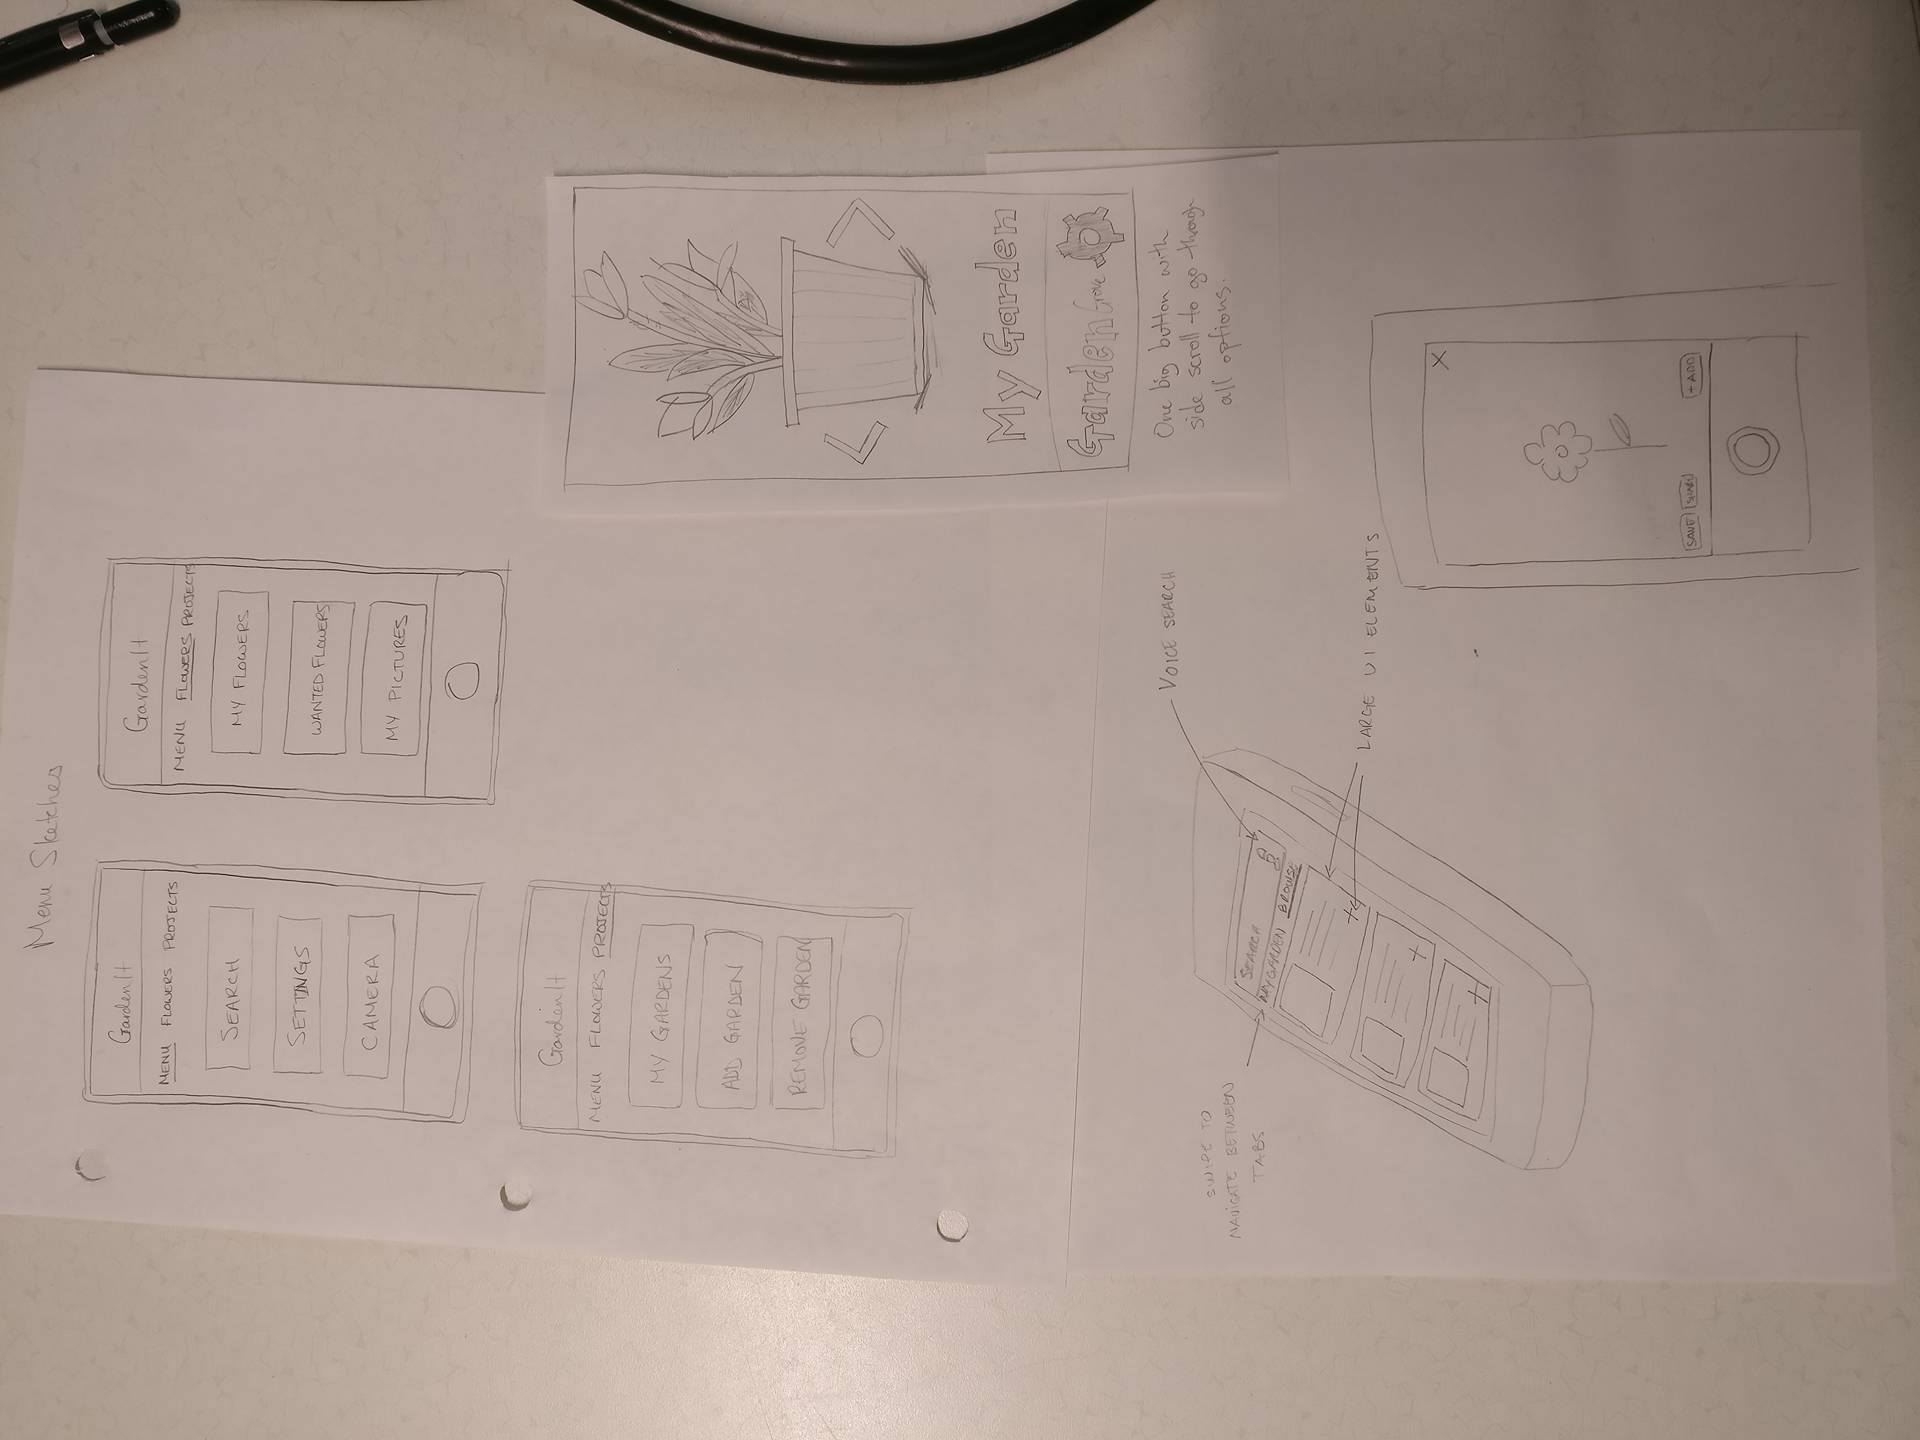 Menu Sketches
GardenIt
MENU FLOWERS PROJECTS
SEARCH
SETTINGS
CAMERA
GardenIt
MENU FLOWERS PROJECTS
MY FLOWERS
WANTED FLOWERS
MY PICTURES
GardenIt
MENU FLOWERS PROJECTS
MY GARDENS
ADD GARDEN
REMOVE GARDEN
My Garden
Garden Grove
One big button with
side scroll to go through
all options.
VOICE SEARCH
SWIPE TO
NAVIGATE BETWEEN
TABS
SEARCH
MY GARDEN BROWSE
LARGE UI ELEMENTS
X
SAVE SHARE +ADD